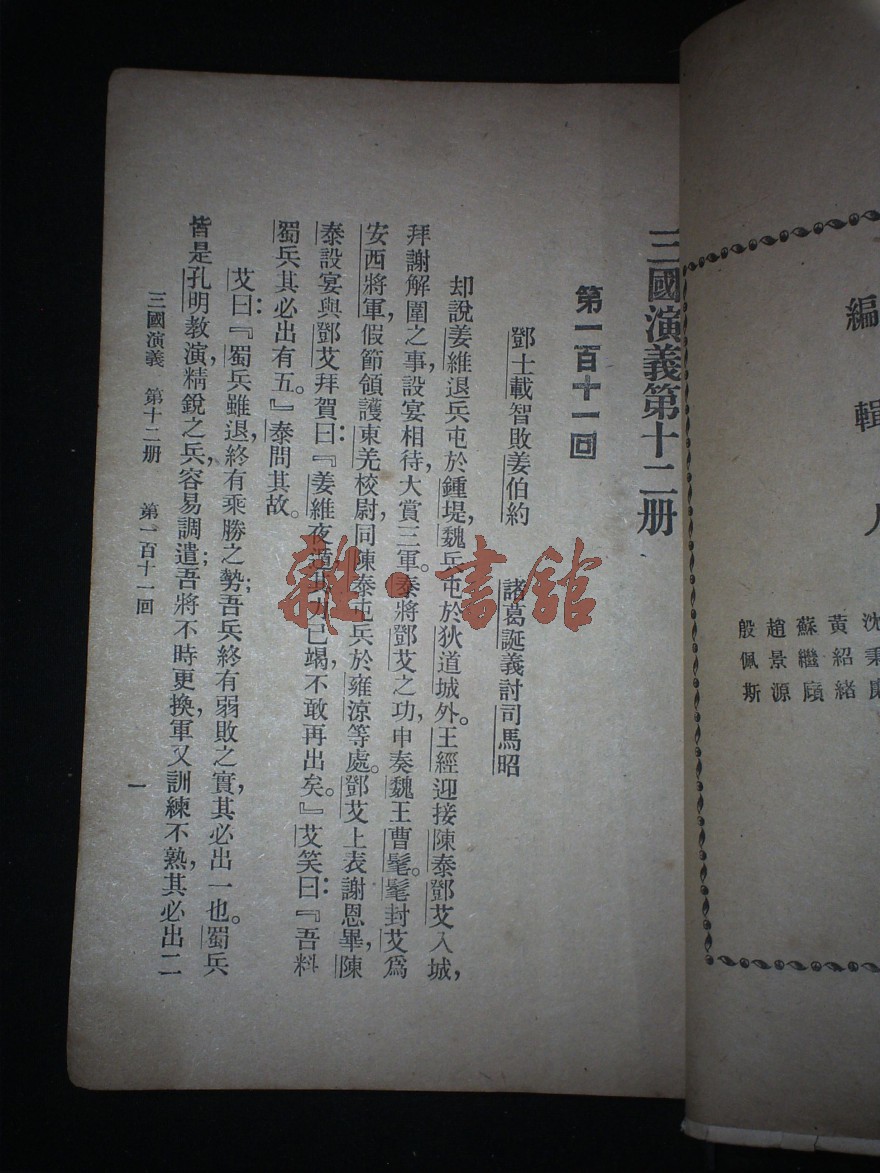 編輯人
沈秉廉
黃紹緒
蘇繼廎
趙景源
殷佩斯
三國演義第十二册
第一百十一回
鄧士載智敗姜伯約　諸葛誕義討司馬昭
却說姜維退兵屯於鍾堤，魏兵屯於狄道城外。王經迎接陳泰鄧艾入城，
拜謝解圍之事，設宴相待，大賞三軍。泰將鄧艾之功，申奏魏王曹髦。髦封艾爲
安西將軍，假節領護東羌校尉，同陳泰屯兵於雍涼等處。鄧艾上表謝恩畢，陳
泰設宴與鄧艾拜賀曰：『姜維夜遁，其力已竭，不敢再出矣。』艾笑曰：『吾料
蜀兵其必出有五。』泰問其故。
艾曰：『蜀兵雖退，終有乘勝之勢；吾兵終有弱敗之實，其必出一也。蜀兵
皆是孔明教演，精銳之兵，容易調遣；吾將不時更換，軍又訓練不熟，其必出二
三國演義　第十二册　第一百十一回　一
雜·書館